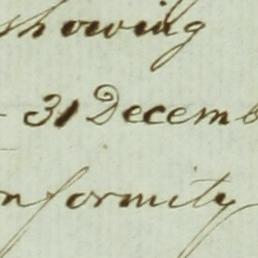 showing
- 31 Decemb
nformity